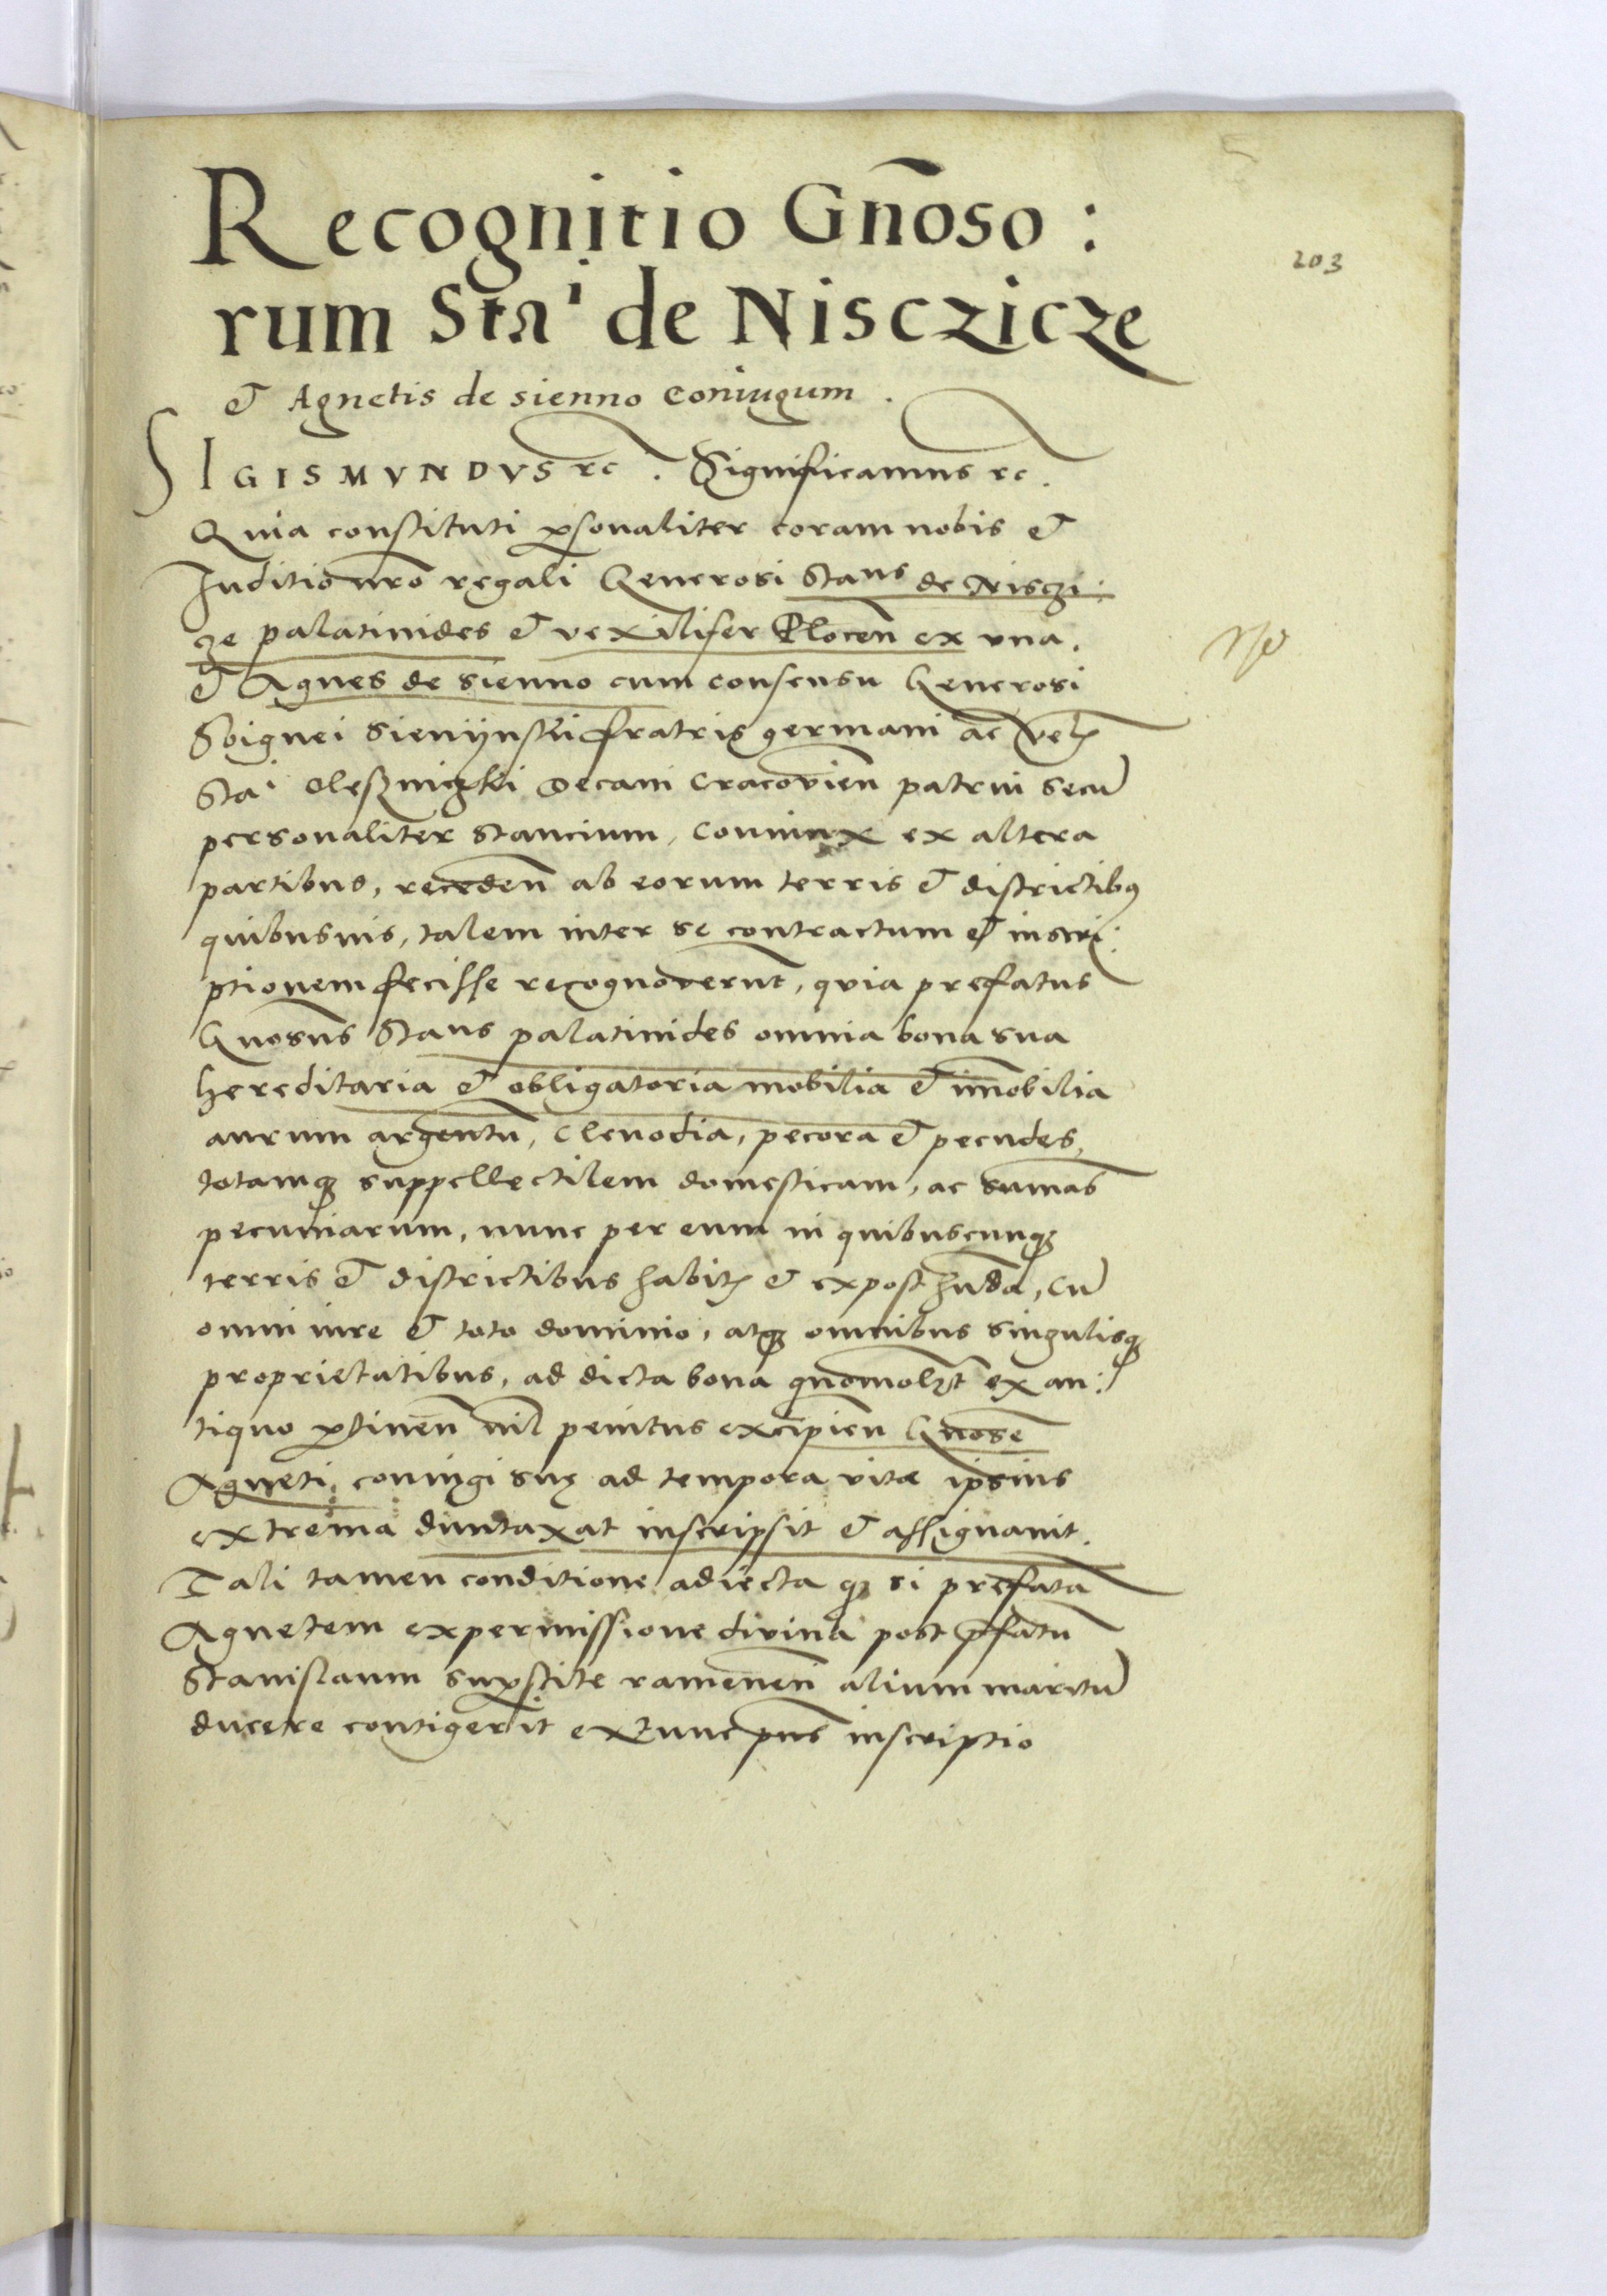 5
Recognitio Gñoso:
203
rum Staⁱ de Nisczicze
et Agnetis de sienno Coniugum.
SIGISMVNDVS rc. Significamus rc.
Quia constituti ꝑsonaliter coram nobis et
Juditio nrõ regali Generosi Staus de Niszi:
cze palatinides et vexilifer Plocen̄ ex vna.
et Agnes de sienno cum consensu Generosi
Sbignei Sienijnski fratris germani ac
Staⁱ Oleßniczki Decani Cracovien̄ patrui secū
personaliter stancium, Coniunx ex altera
partibus, receden̄ ab eorum terris et districtibꝰ
quibusuis, talem inter se contractum et inscri:
ptionem fecisse recognoverūt, quia prefatus
Gnosus Staus palatinides omnia bona sua
hereditaria et obligatoria mobilia et im̄obilia
aurum argentū, Clenodia, pecora et pecudes,
totamqꝫ suppellectilem domesticam, ac sum̄as
pecuniarum, nunc per eum in quibuscunqꝫ
terris et districtibus habit et expost hn̄da, cū
omni iure et toto dominio, atqꝫ omnibus singulisqꝫ
proprietatibus, ad dicta bona quomol3t ex an:
tiquo ꝑtinen̄ nil penitus excipien̄ Gnose
Agneti, coniugi suę ad tempora vitæ ipsius
extrema duntaxat inscripsit et assignauit.
Tali tamen conditione adiecta qꝫ si prefatā
Agnetem expermissione divina post p̄fatū
Stanislaum suꝑstite ramenen̄ alium maritū
ducere contigerit extunc pn̄s inscriptio